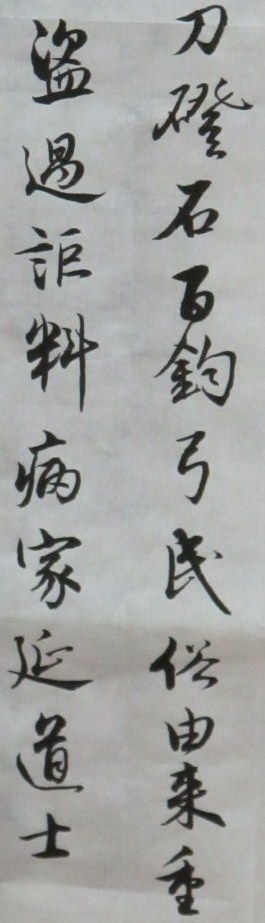 刀磴石百鈞弓民俗由来重
盗過詎料病家延道士